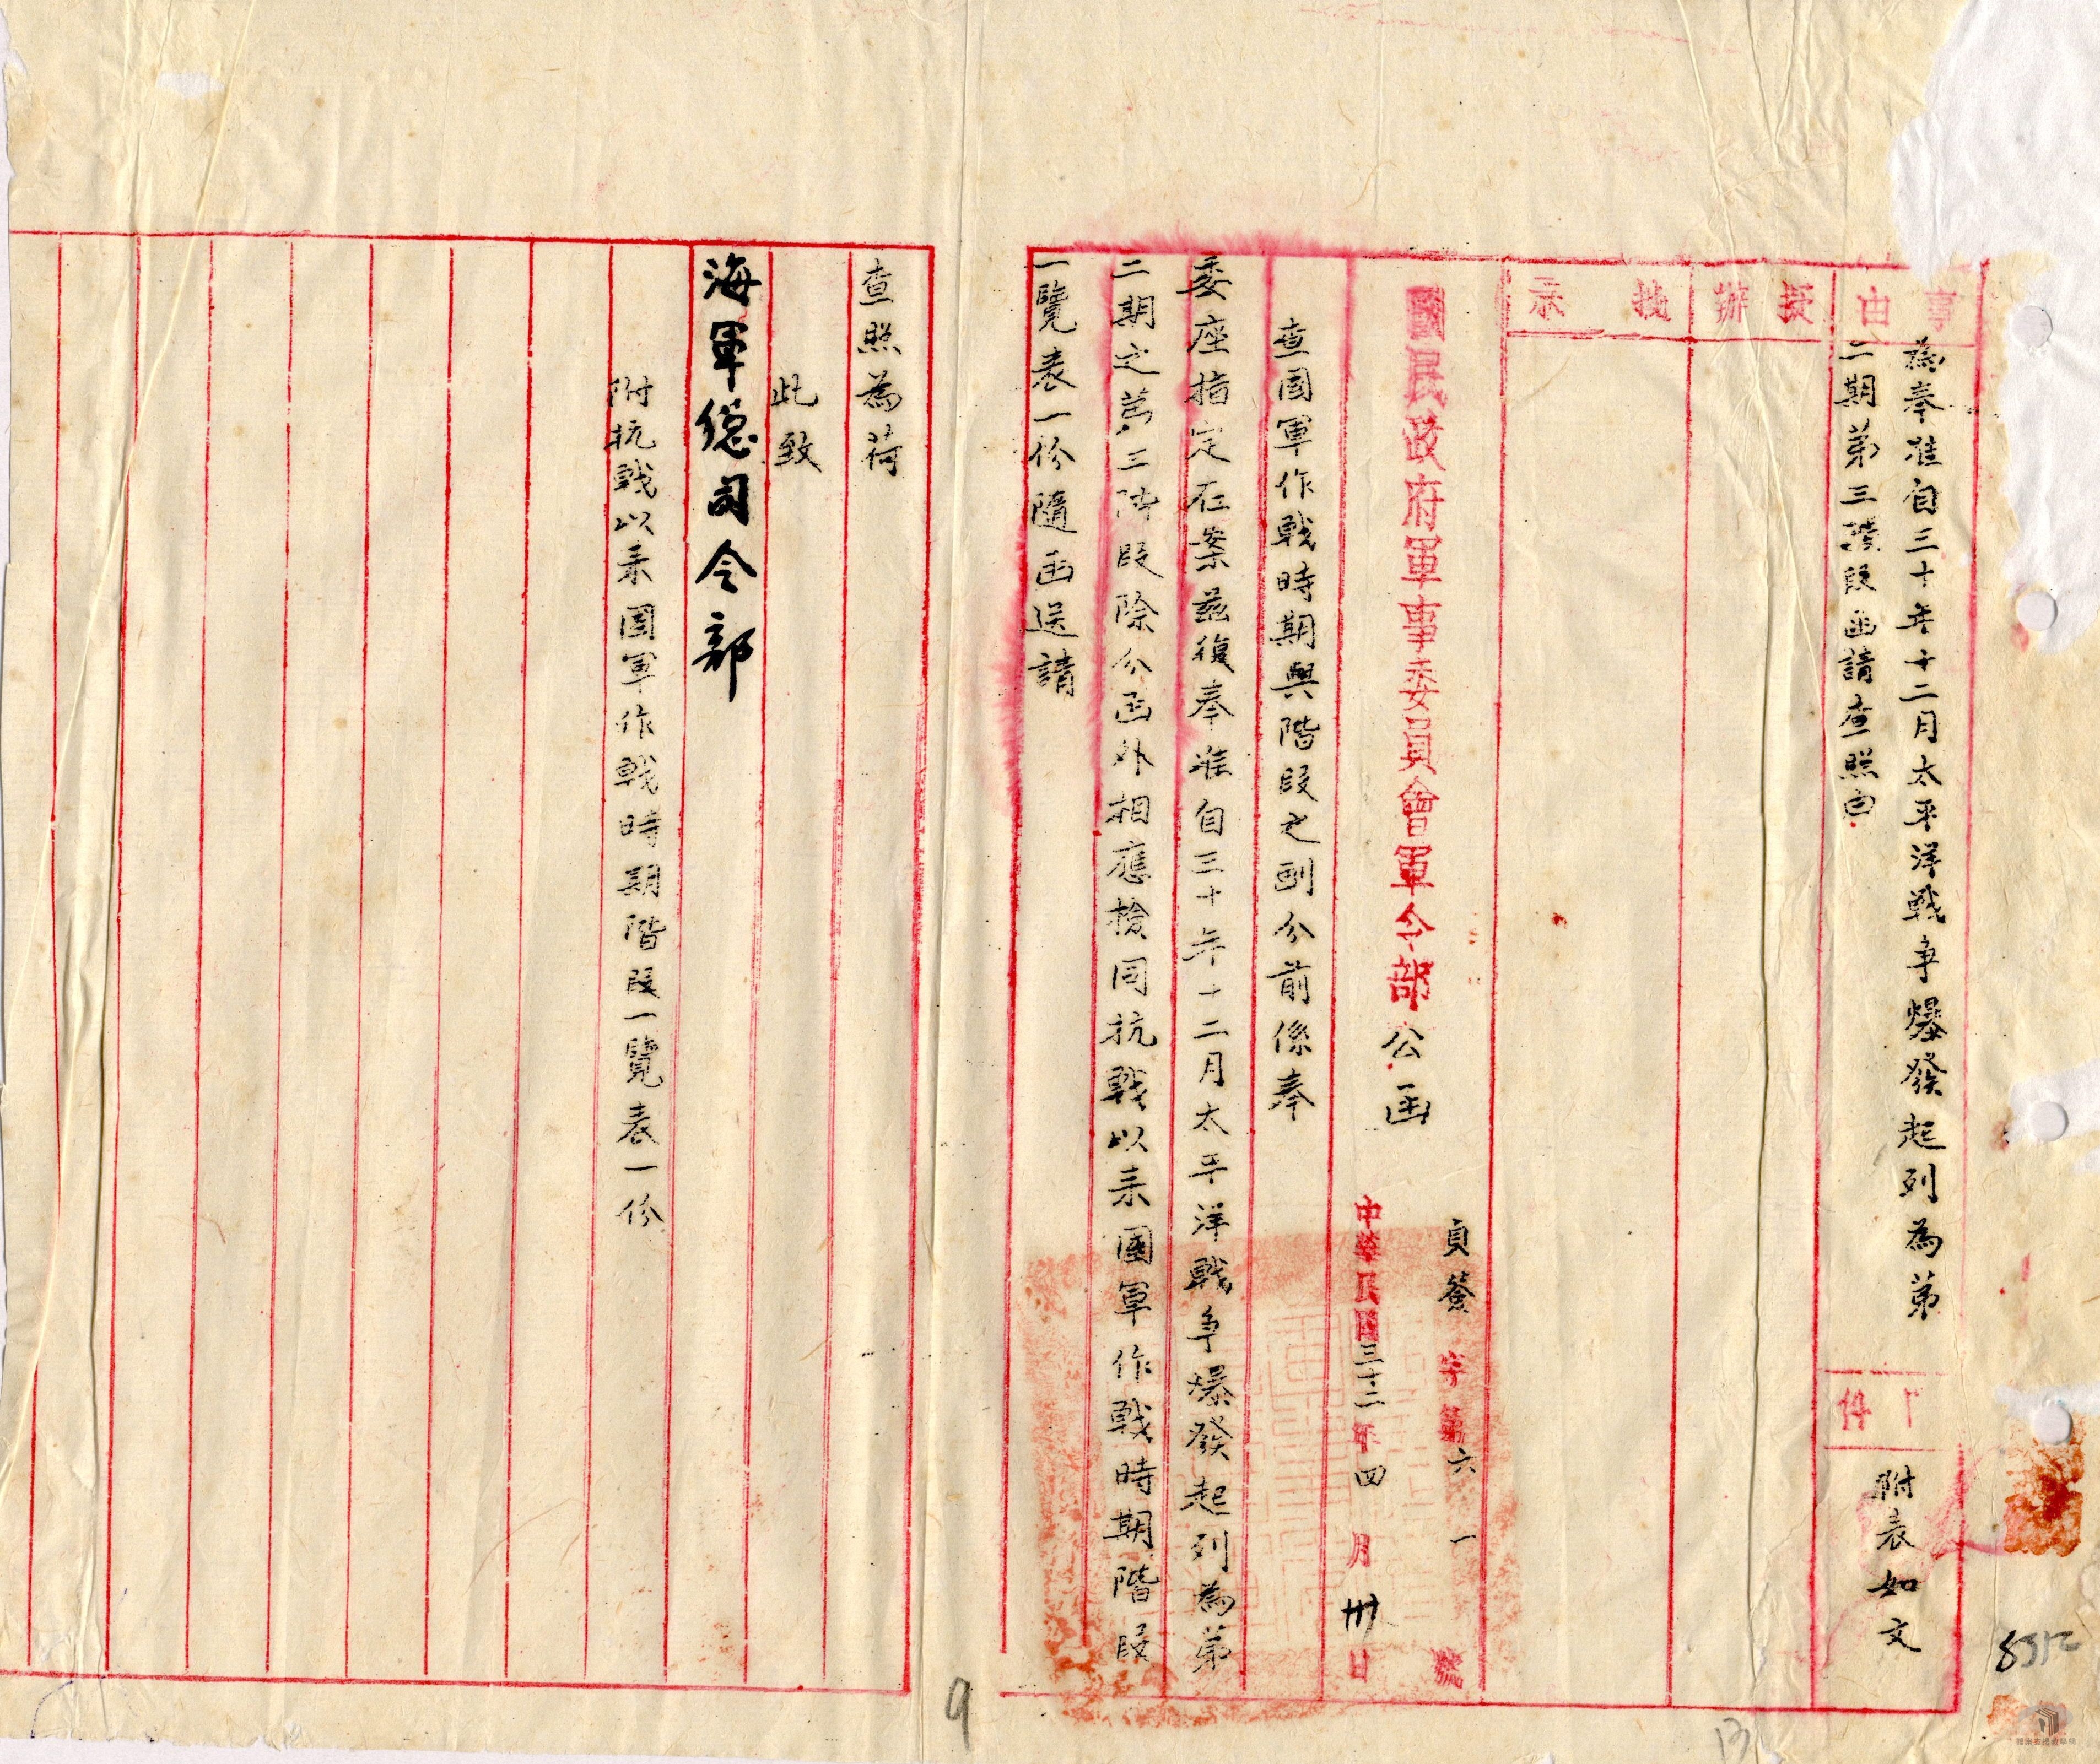 事由
為奉准自三十年十二月太平洋戰爭爆發起列為第
二期第三階段函請查照由
件
附表如文
擬辦
批示
國民政府軍事委員會軍令部公函
貞簽字第六一號
中華民國三十二年四月卅日
查國軍作戰時期與階段之劃分前係奉
委座指定在案茲復奉准自三十年十二月太平洋戰爭爆發起列為第
二期之第三階段除分函外相應檢同抗戰以來國軍作戰時期階段
一覽表一份隨函送請
查照為荷
此致
海軍總司令部
附抗戰以來國軍作戰時期階段一覽表一份
9
13